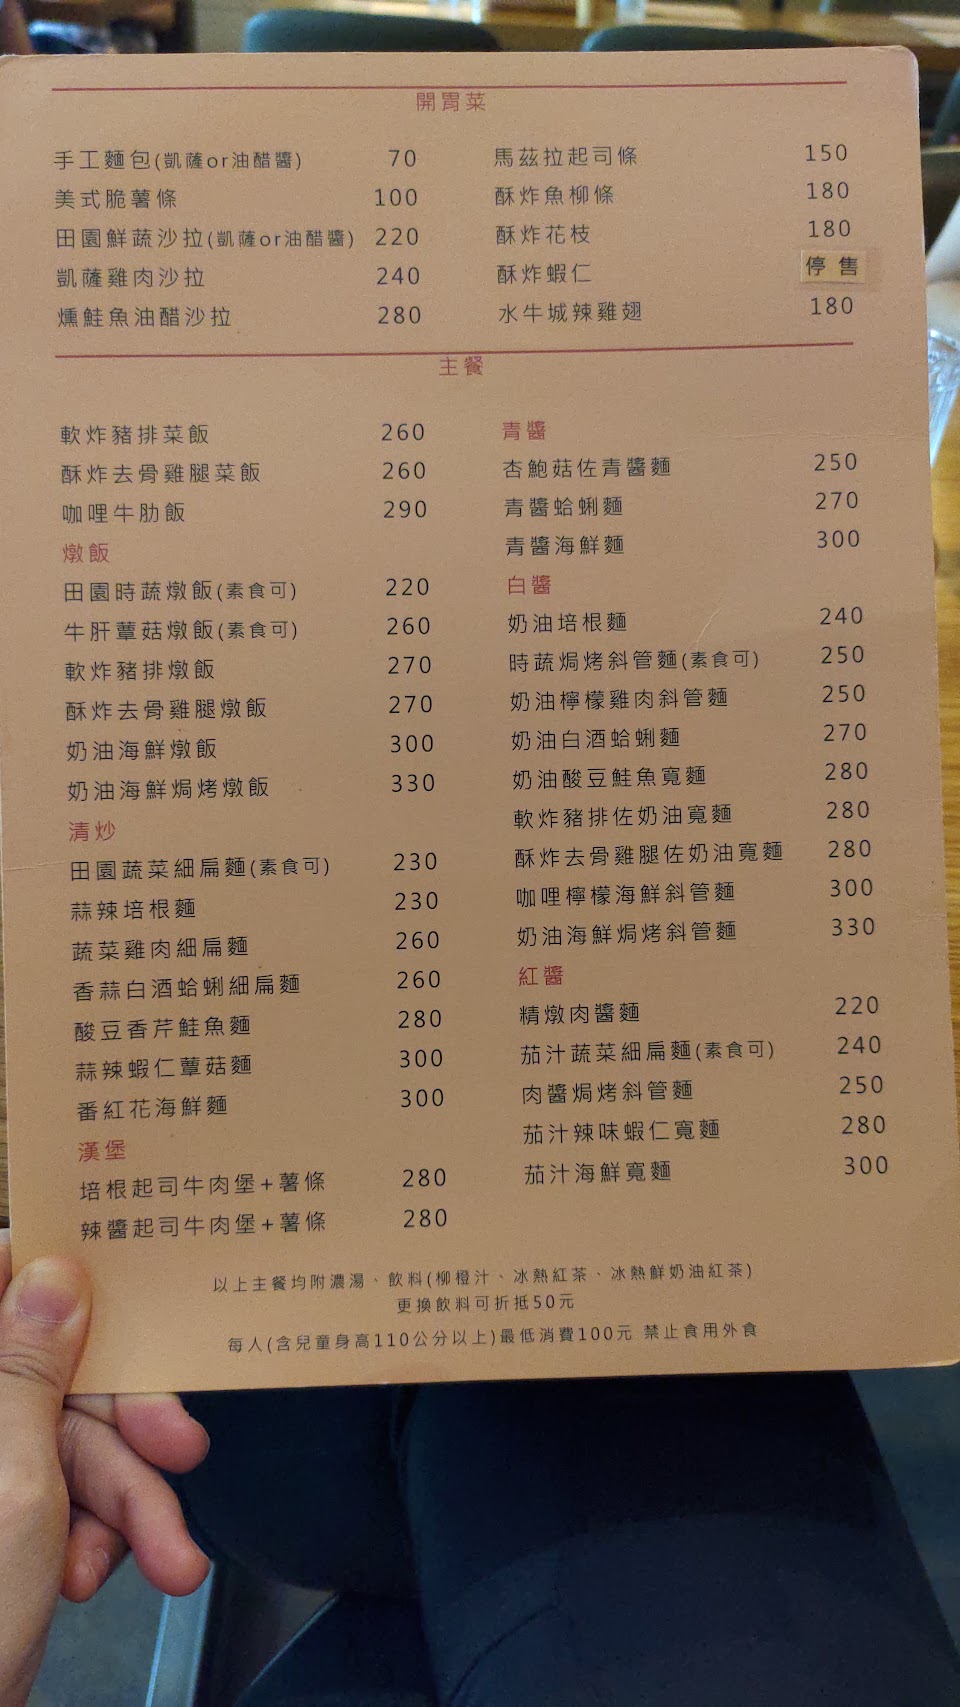 開胃菜
手工麵包(凱薩or油醋醬) 70
美式脆薯條 100
田園鮮蔬沙拉(凱薩or油醋醬) 220
凱薩雞肉沙拉 240
燻鮭魚油醋沙拉 280
馬茲拉起司條 150
酥炸魚柳條 180
酥炸花枝 180
酥炸蝦仁 停售
水牛城辣雞翅 180
主餐
軟炸豬排菜飯 260
酥炸去骨雞腿菜飯 260
咖哩牛肋飯 290
燉飯
田園時蔬燉飯(素食可) 220
牛肝蕈菇燉飯(素食可) 260
軟炸豬排燉飯 270
酥炸去骨雞腿燉飯 270
奶油海鮮燉飯 300
奶油海鮮焗烤燉飯 330
清炒
田園蔬菜細扁麵(素食可) 230
蒜辣培根麵 230
蔬菜雞肉細扁麵 260
香蒜白酒蛤蜊細扁麵 260
酸豆香芹鮭魚麵 280
蒜辣蝦仁蕈菇麵 300
番紅花海鮮麵 300
漢堡
培根起司牛肉堡+薯條 280
辣醬起司牛肉堡+薯條 280
青醬
杏鮑菇佐青醬麵 250
青醬蛤蜊麵 270
青醬海鮮麵 300
白醬
奶油培根麵 240
時蔬焗烤斜管麵(素食可) 250
奶油檸檬雞肉斜管麵 250
奶油白酒蛤蜊麵 270
奶油酸豆鮭魚寬麵 280
軟炸豬排佐奶油寬麵 280
酥炸去骨雞腿佐奶油寬麵 280
咖哩檸檬海鮮斜管麵 300
奶油海鮮焗烤斜管麵 330
紅醬
精燉肉醬麵 220
茄汁蔬菜細扁麵(素食可) 240
肉醬焗烤斜管麵 250
茄汁辣味蝦仁寬麵 280
茄汁海鮮寬麵 300
以上主餐均附濃湯、飲料(柳橙汁、冰熱紅茶、冰熱鮮奶油紅茶)
更換飲料可折抵50元
每人(含兒童身高110公分以上)最低消費100元 禁止食用外食